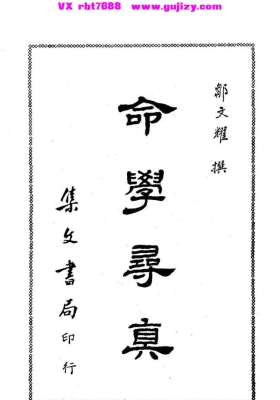 VX rbt7688 www.gujizy.com
鄒文耀 撰
命學尋真
集文書局印行